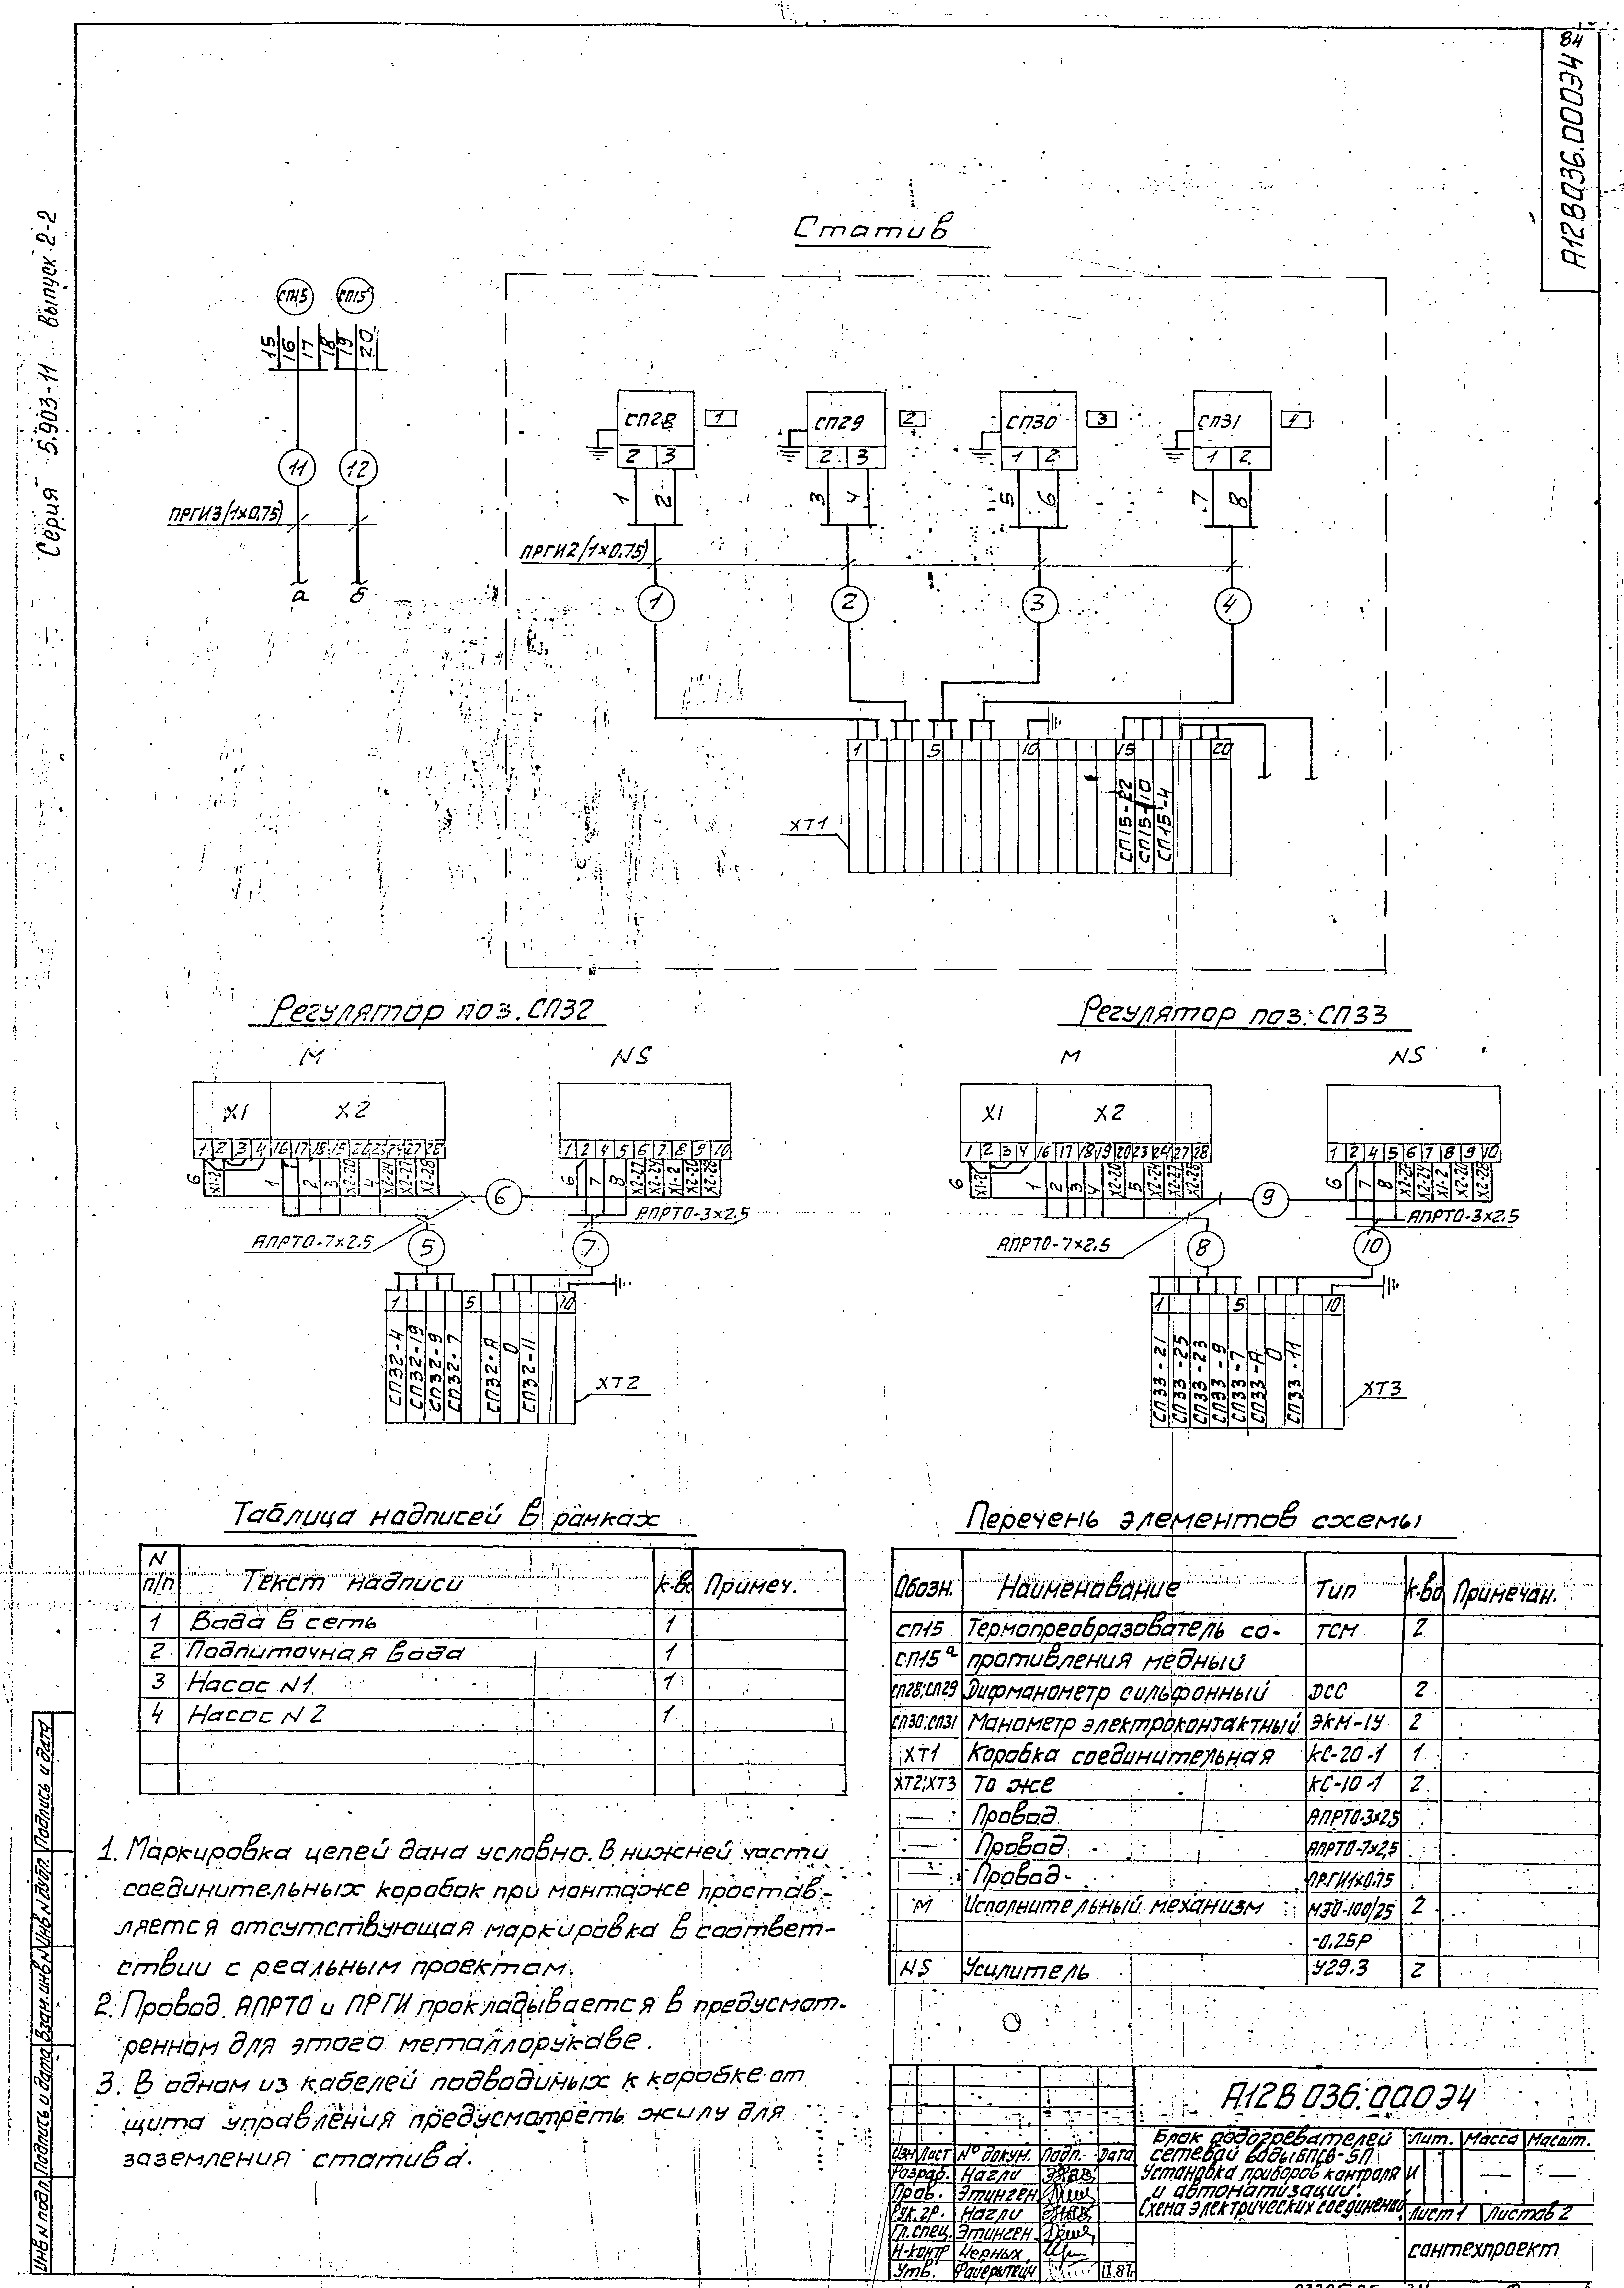 84
А12В036.000Э4
Серия 5.903-11 Выпуск 2-2
Статив
СП15 СП15
15 16 17 18 19 20
11 12
ПРГИ3(1х0,75)
а б
СП28 1
СП29 2
СП30 3
СП31 4
2 3
2 3
1 2
1 2
1 2 3 4 5 6 7 8
ПРГИ2(1х0,75)
1 2 3 4
1 5 10 15 20
ХТ1
СП15-22
СП15-10
СП15-4
Регулятор поз. СП32
М NS
Х1 Х2
1 2 3 4 16 17 18 19 20 23 24 27 28
1 2 4 5 6 7 8 9 10
6 Х1-2 1 2 3 Х2-20 4 Х2-24 Х2-27 Х2-28
6 7 8 Х2-27 Х2-24 Х1-2 Х2-20 Х2-28
6
АПРТО-3х2,5
АПРТО-7х2,5
5 7
1 5 10
СП32-4
СП32-19
СП32-9
СП32-7
СП32-А
0
СП32-11
ХТ2
Регулятор поз. СП33
М NS
Х1 Х2
1 2 3 4 16 17 18 19 20 23 24 27 28
1 2 4 5 6 7 8 9 10
6 Х1-2 1 2 3 4 Х2-20 5 Х2-24 Х2-27 Х2-28
6 7 8 Х2-27 Х2-24 Х1-2 Х2-20 Х2-28
9
АПРТО-3х2,5
АПРТО-7х2,5
8 10
1 5 10
СП33-21
СП33-25
СП33-23
СП33-9
СП33-7
СП33-А
0
СП33-11
ХТ3
Таблица надписей в рамках
N п/п Текст надписи к-во Примеч.
1 Вода в сеть 1
2 Подпиточная вода 1
3 Насос N1 1
4 Насос N2 1
Перечень элементов схемы
Обозн. Наименование Тип к-во Примечан.
СП15 Термопреобразователь со- ТСМ 2
СП15ª противления медный
СП28;СП29 Дифманометр сильфонный ДСС 2
СП30;СП31 Манометр электроконтактный ЭКМ-1У 2
ХТ1 Коробка соединительная КС-20-1 1
ХТ2;ХТ3 То же КС-10-1 2
— Провод АПРТО-3х2,5
— Провод АПРТО-7х2,5
— Провод ПРГИ1х0,75
М Исполнительный механизм МЭО-100/25 2
-0,25Р
NS Усилитель У29.3 2
1. Маркировка цепей дана условно. В нижней части
соединительных коробок при монтаже простав-
ляется отсутствующая маркировка в соответ-
ствии с реальным проектом.
2. Провод АПРТО и ПРГИ прокладывается в предусмот-
ренном для этого металлорукаве.
3. В одном из кабелей подводимых к коробке от
щита управления предусмотреть жилу для
заземления статива.
А12В036.000Э4
Блок подогревателей
сетевой воды БПСВ-5П
Установка приборов контроля
и автоматизации.
Схема электрических соединений
Лит. Масса Масшт.
И — —
Лист 1 Листов 2
сантехпроект
Изм Лист № докум. Подп. Дата
Разраб. Нагли
Пров. Этинген
Рук. гр. Нагли
Гл. спец. Этинген
Н-контр Черных
Утв.
Инв N подл. Подпись и дата Взам. инв N Инв N дубл. Подпись и дата